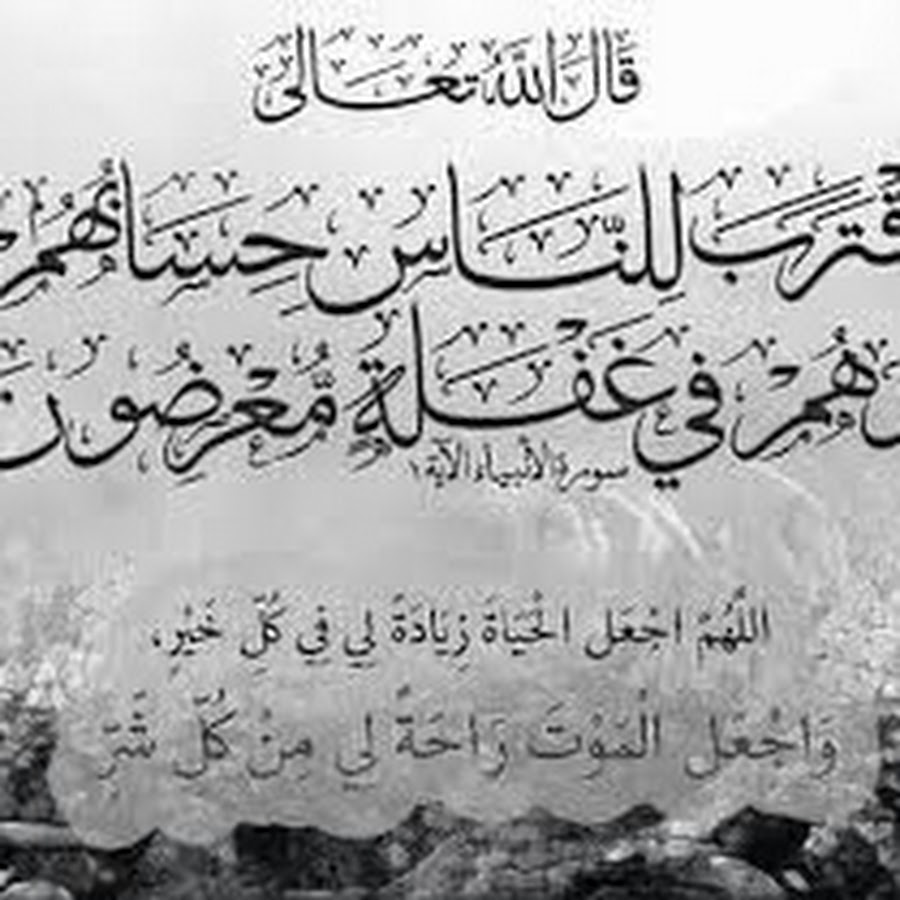 قَالَ اللَّهُ تَعَالَى
قْتَرَبَ لِلنَّاسِ حِسَابُهُمْ
هُمْ فِي غَفْلَةٍ مُّعْرِضُونَ
سورة الأنبياء الآية ١
اللَّهُمَّ اجْعَل الْحَيَاةَ زِيَادَةً لِي فِي كُلِّ خَيْرٍ،
وَاجْعَل الْمَوْتَ رَاحَةً لِي مِنْ كُلِّ شَرٍّ